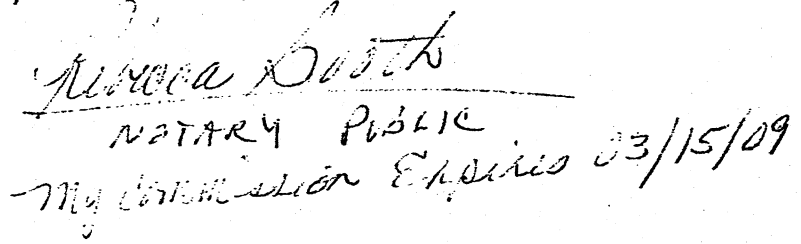 Rebecca Booth
NOTARY PUBLIC
My Commission Expires 03/15/09